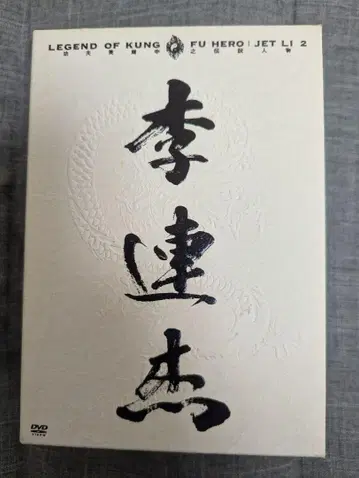 LEGEND OF KUNG FU HERO | JET LI 2
功夫英雄中之伝説人物
李
連
杰
DVD
VIDEO